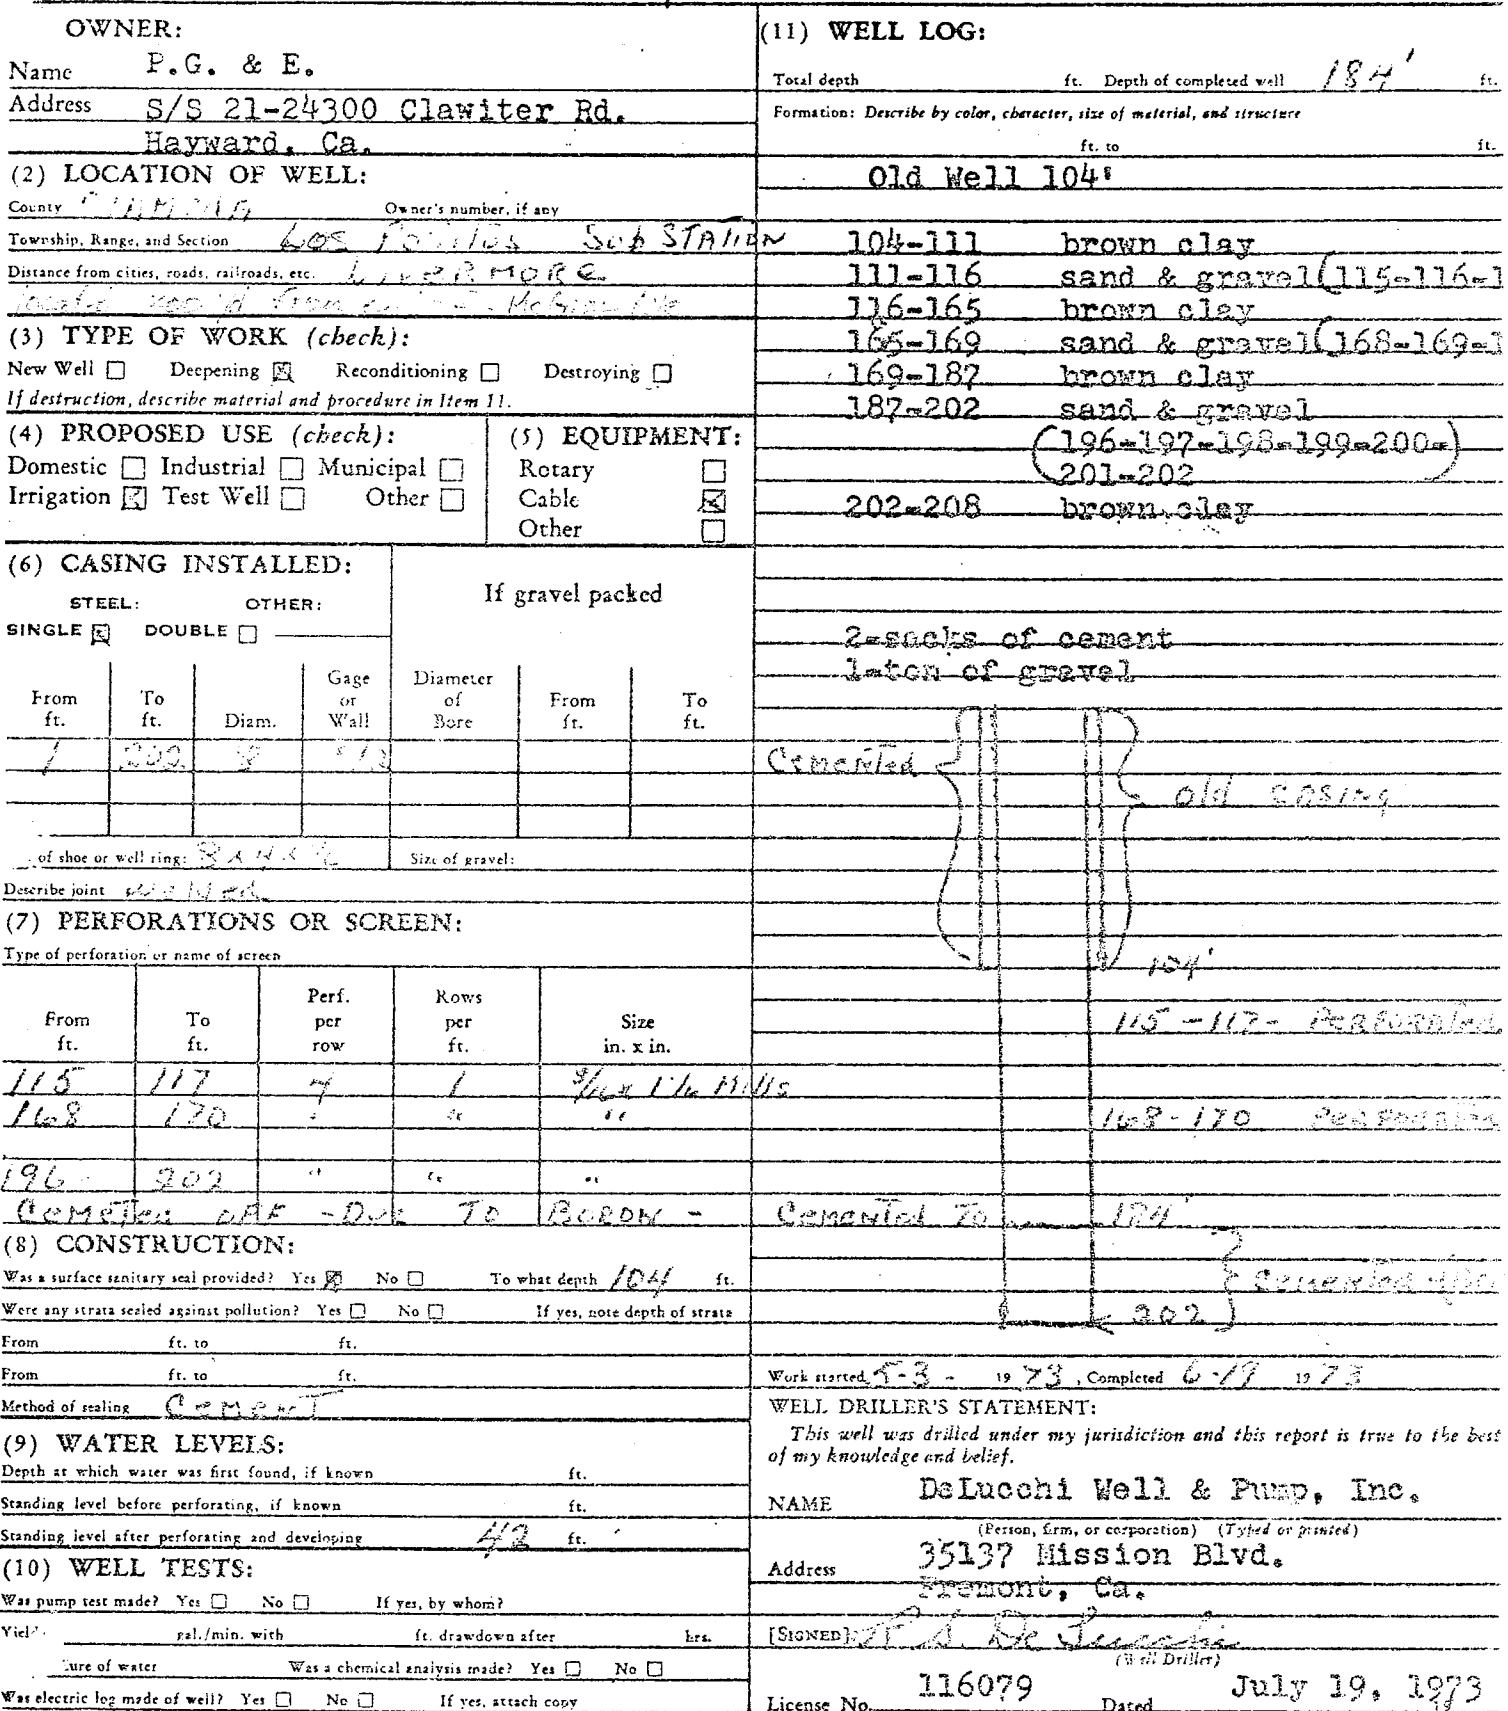 OWNER:
Name P.G. & E.
Address S/S 21-24300 Clawiter Rd.
Hayward, Ca.
(2) LOCATION OF WELL:
County Owner's number, if any
Township, Range, and Section Los Positos Sub STATION
Distance from cities, roads, railroads, etc. LIVERMORE
(3) TYPE OF WORK (check):
New Well ☐ Deepening ☒ Reconditioning ☐ Destroying ☐
If destruction, describe material and procedure in Item 11.
(4) PROPOSED USE (check):
Domestic ☐ Industrial ☐ Municipal ☐
Irrigation ☒ Test Well ☐ Other ☐
(5) EQUIPMENT:
Rotary ☐
Cable ☒
Other ☐
(6) CASING INSTALLED:
STEEL: OTHER:
SINGLE ☒ DOUBLE ☐
If gravel packed
From ft. To ft. Diam. Gage or Wall Diameter of Bore From ft. To ft.
1 202 8
of shoe or well ring: Size of gravel:
Describe joint welded
(7) PERFORATIONS OR SCREEN:
Type of perforation or name of screen
From ft. To ft. Perf. per row Rows per ft. Size in. x in.
115 117 4 1 Mills
168 170 " " "
196- 202 " " "
Cemented off - Due To BORON -
(8) CONSTRUCTION:
Was a surface sanitary seal provided? Yes ☒ No ☐ To what depth 104 ft.
Were any strata sealed against pollution? Yes ☐ No ☐ If yes, note depth of strata
From ft. to ft.
From ft. to ft.
Method of sealing CEMENT
(9) WATER LEVELS:
Depth at which water was first found, if known ft.
Standing level before perforating, if known ft.
Standing level after perforating and developing 42 ft.
(10) WELL TESTS:
Was pump test made? Yes ☐ No ☐ If yes, by whom?
Yield: gal./min. with ft. drawdown after hrs.
ture of water Was a chemical analysis made? Yes ☐ No ☐
Was electric log made of well? Yes ☐ No ☐ If yes, attach copy
(11) WELL LOG:
Total depth ft. Depth of completed well 184' ft.
Formation: Describe by color, character, size of material, and structure
ft. to ft.
Old Well 104'
104-111 brown clay
111-116 sand & gravel(115-116-1
116-165 brown clay
165-169 sand & gravel(168-169-1
169-187 brown clay
187-202 sand & gravel
(196-197-198-199-200-
201-202)
202-208 brown clay
2-sacks of cement
1-ton of gravel
Cemented
old CASING
104'
115-117- PERFORATED
168-170 PERFORATED
Cemented To 184'
Cemented
202
Work started 5-3- 1973, Completed 6-19 1973
WELL DRILLER'S STATEMENT:
This well was drilled under my jurisdiction and this report is true to the best
of my knowledge and belief.
NAME DeLucchi Well & Pump, Inc.
(Person, firm, or corporation) (Typed or printed)
Address 35137 Mission Blvd.
Fremont, Ca.
[SIGNED] De Lucchi
(Well Driller)
License No. 116079 Dated July 19, 1973